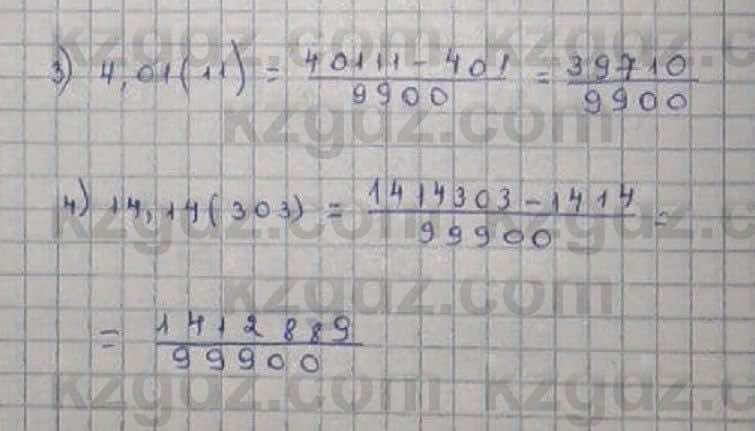 kzgdz.com kzgdz.com
3) 4,01(11) = 40111 - 401 / 9900 = 39710 / 9900
kzgdz.com
4) 14,14(303) = 1414303 - 1414 / 99900 =
kzgdz.com kzgdz.com
kzgdz.com
= 1412889 / 99900
kzgdz.com kzgdz.com